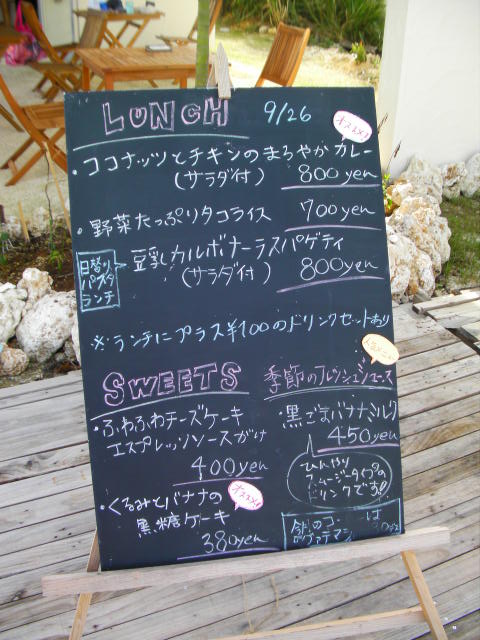 LUNCH 9/26
オススメ!
・ココナッツとチキンのまろやかカレー
(サラダ付) 800yen
・野菜たっぷりタコライス 700yen
日替り
パスタ
ランチ
豆乳カルボナーラスパゲティ
(サラダ付) 800yen
※ランチにプラス¥100のドリンクセットあり
SWEETS
・ふわふわチーズケーキ
エスプレッソソースがけ
400yen
オススメ!
・くるみとバナナの
黒糖ケーキ
380yen
季節のフレッシュジュース
・黒ごまバナナミルク
450yen
ひんやり
スムージータイプの
ドリンクです!